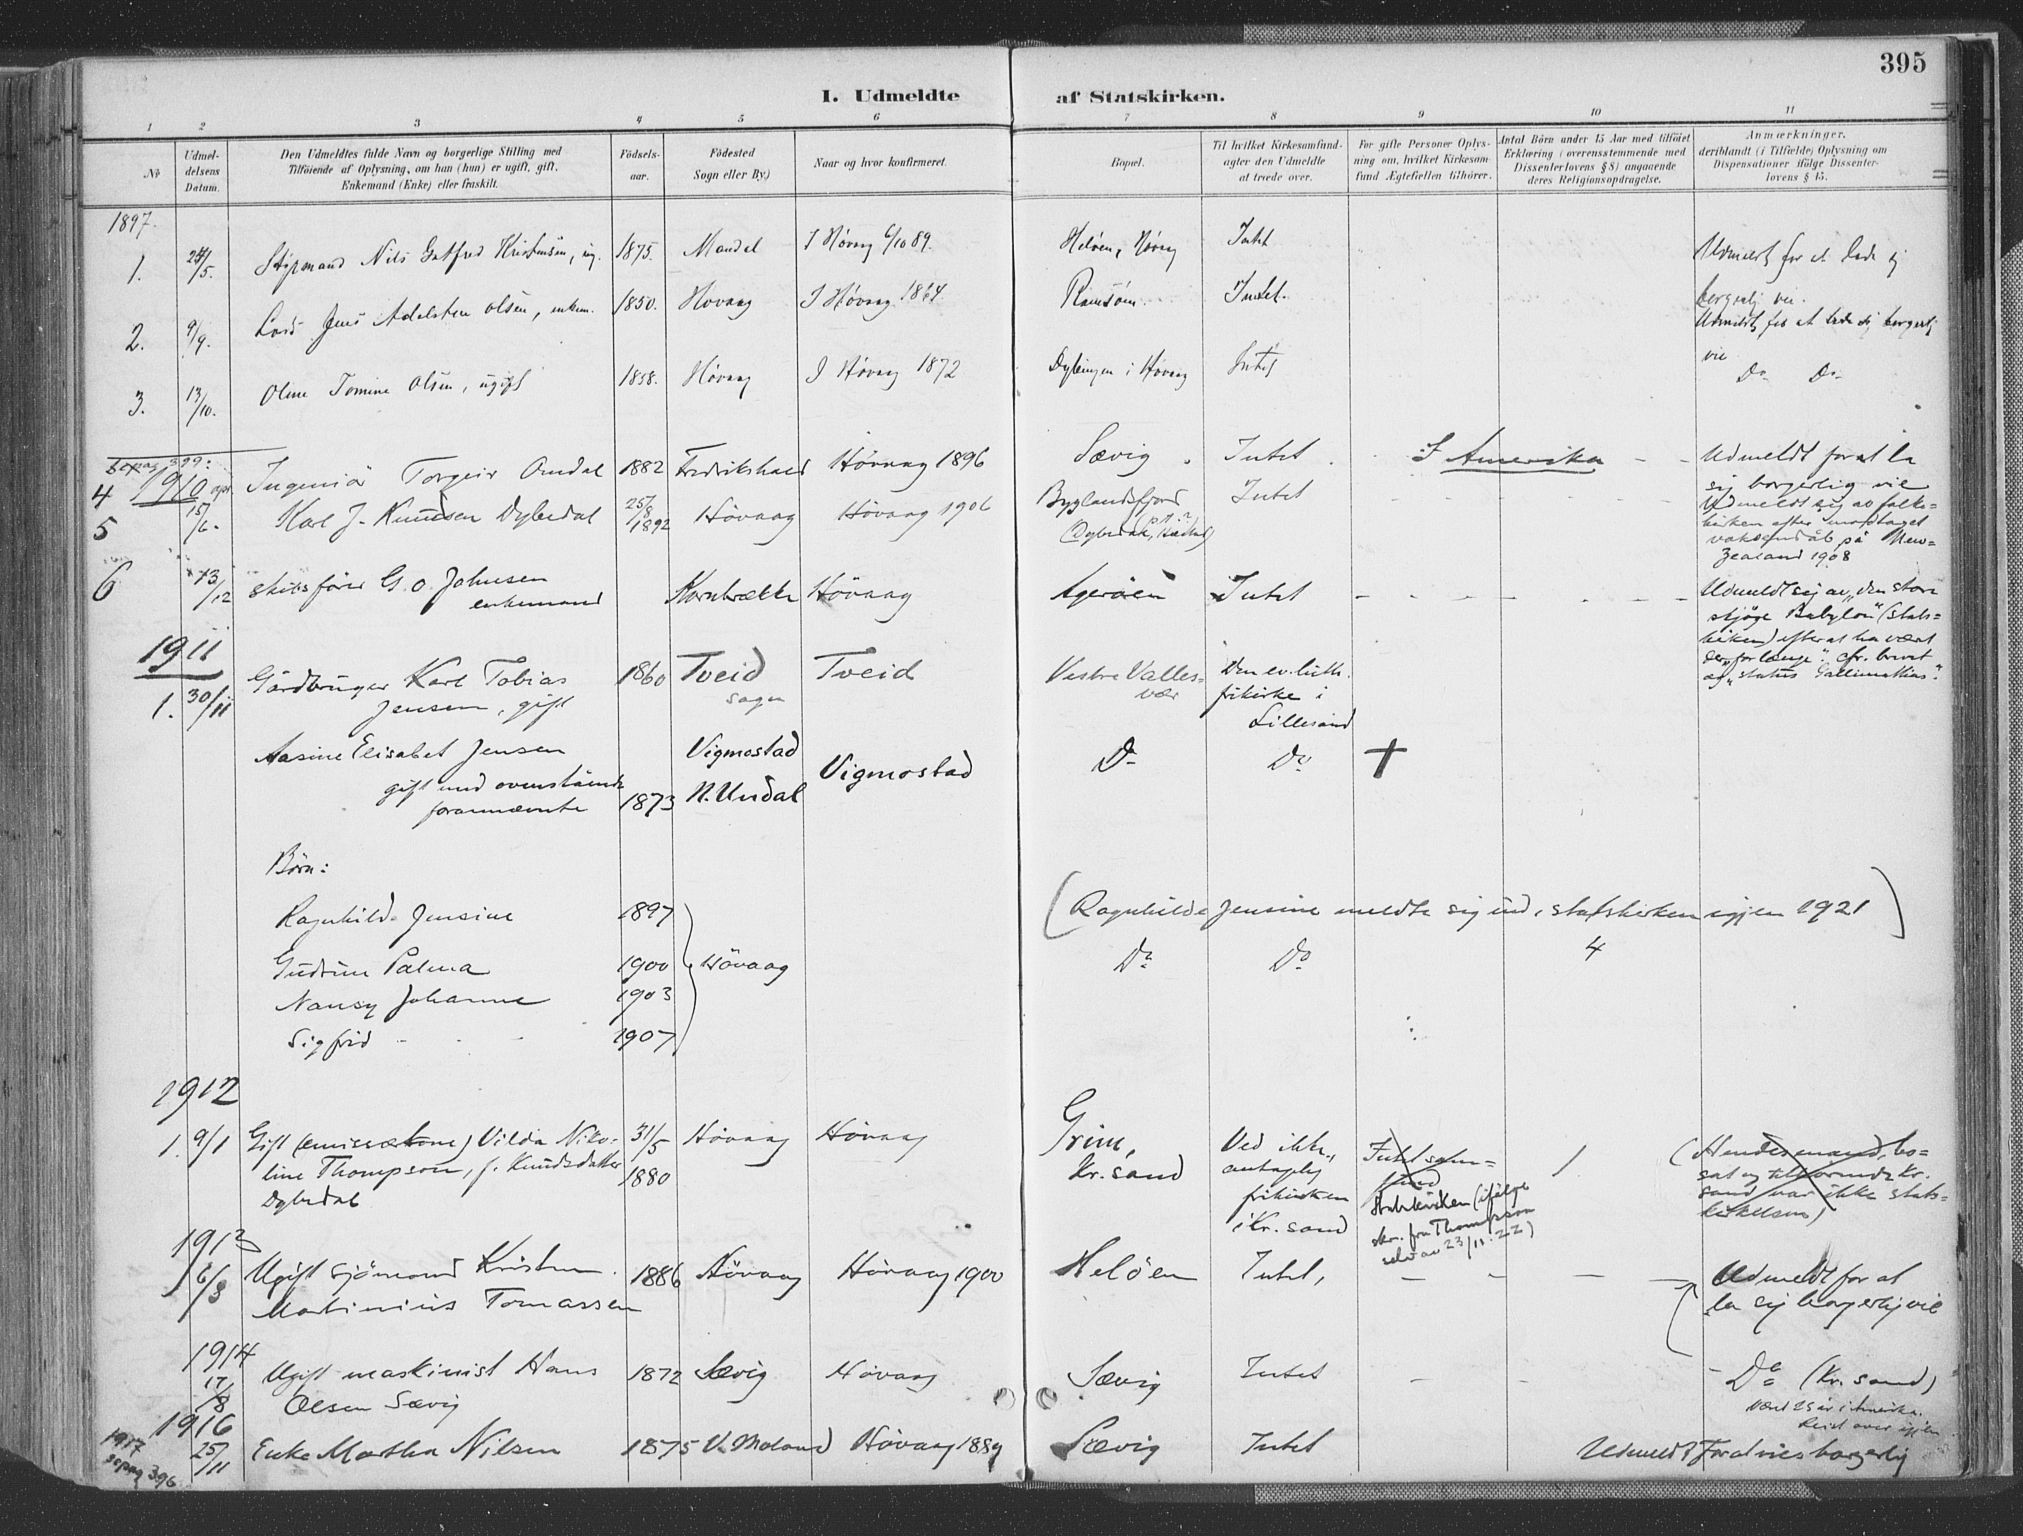 395
I. Udmeldte af Statskirken.
1 2 3 4 5 6 7 8 9 10 11
No
Udmel-
delsens
Datum.
Den Udmeldtes fulde Navn og borgerlige Stilling med
Tilföiende af Oplysning, om han (hun) er ugift, gift,
Enkemand (Enke) eller fraskilt.
Födsels-
aar.
Födested
Sogn eller By.)
Naar og hvor konfirmeret.
Bopæl.
Til hvilket Kirkesamfund-
agter den Udmeldte
at træde over.
For gifte Personer Oplys-
ning om, hvilket Kirkesam-
fund Ægtefællen tilhörer.
Antal Börn under 15 Aar med tilföiet
Erklæring (overensstemmende med
Dissenterlovens § 8) angaaende
deres Religionsopdragelse.
Anmærkninger,
deriblandt (i Tilfælde) Oplysning om
Dispensationer ifölge Dissenter-
lovens § 15.
1897.
1. 24/5. Nils Gotfred Kristensen, ug. 1875. Mandal I Høvaag 6/10 89. Heløen, Høvaag Intet Udmeldt for at lade sig
borgerlig vie.
2. 9/9. Lods Jens Adelsten Olsen, enkem. 1850. Hovaag I Høvaag 1864 Ramsøen Intet. Udmeldt for at lade sig borgerlig
vie
3. 13/10. Oline Tomine Olsen, ugift 1858. Høvaag I Høvaag 1872 Dybingen i Høvaag Intet Do Do
se pag 399:
1910
4 Ingeniör Torgeir Omdal 1882 Fredrikshald Hövaag 1896 Sævig Intet I Amerika Udmeldt for at la
sig borgerlig vie
5 15/6. Karl J. Knudsen Dybedal 25/8 1892 Hövaag Hövaag 1906 Byglandsfjord
(Dybedal, ) Intet Udmeldt sig av folke-
kirken efter modtaget
voksendåb på New-
Zealand 1908
6 13/12 Skibsförer G. O. Johnsen
enkemand Kornbrække Hövaag Agerøen Intet Udmeldt sig av "den store
skjöge Babylon" (stats-
kirken) efter at ha været
der "for længe". cfr. brevet
ag "status Gallimathias".
1911
1. 30/11 Gårdbruger Karl Tobias
Jensen, gift 1860 Tveid
sogn Tveid Vestre Valles-
vær Den ev. luth.
frikirke i
Lillesand
Aasine Elisabet Jensen
gift med ovenstående
forannævnte 1873 Vigmostad
N. Undal Vigmostad Do Do +
Börn:
Ragnhilda Jensine 1897
(Ragnhilda Jensine meldte sig ind i statskirken igjen 1921)
Gudrun Palma 1900 Hövaag Do Do 4
Nansy Johanne 1903
Sigfrid 1907
1912
1. 9/1 Gift (emissærkone) Vilda Niko-
line Thompson, f. Knudsdatter
Dybedal 31/5 1880 Hövaag Hövaag Grim,
Kr.sand Ved ikke,
antagelig
frikirken
i Kr. sand Intet sam-
fund
Statskirken (ifölge
skr. fra Thompson
selv av 23/11. 22) 1 (Hendes mand, bo-
sat og tilhörende Kr.
sand var ikke stats-
kirkelem)
1913
6/8 Ugift sjömand Kristen
Martinius Tomassen 1886 Hövaag Hövaag 1900 Helöen Intet, Udmeldt for at
la sig borgerlig vie
1914
17/8 Ugift maskinist Hans
Olsen Sævig 1872 Sævig Hövaag Sævig Intet Do (Kr. sand)
Været 25 år i Amerika.
Reist over igjen
1916
25/11 Enke Martha Nilsen 1875 V. Moland Hövaag 1889 Sævig Intet Udmeldt for at vies borgerlig
1917
se pag 396